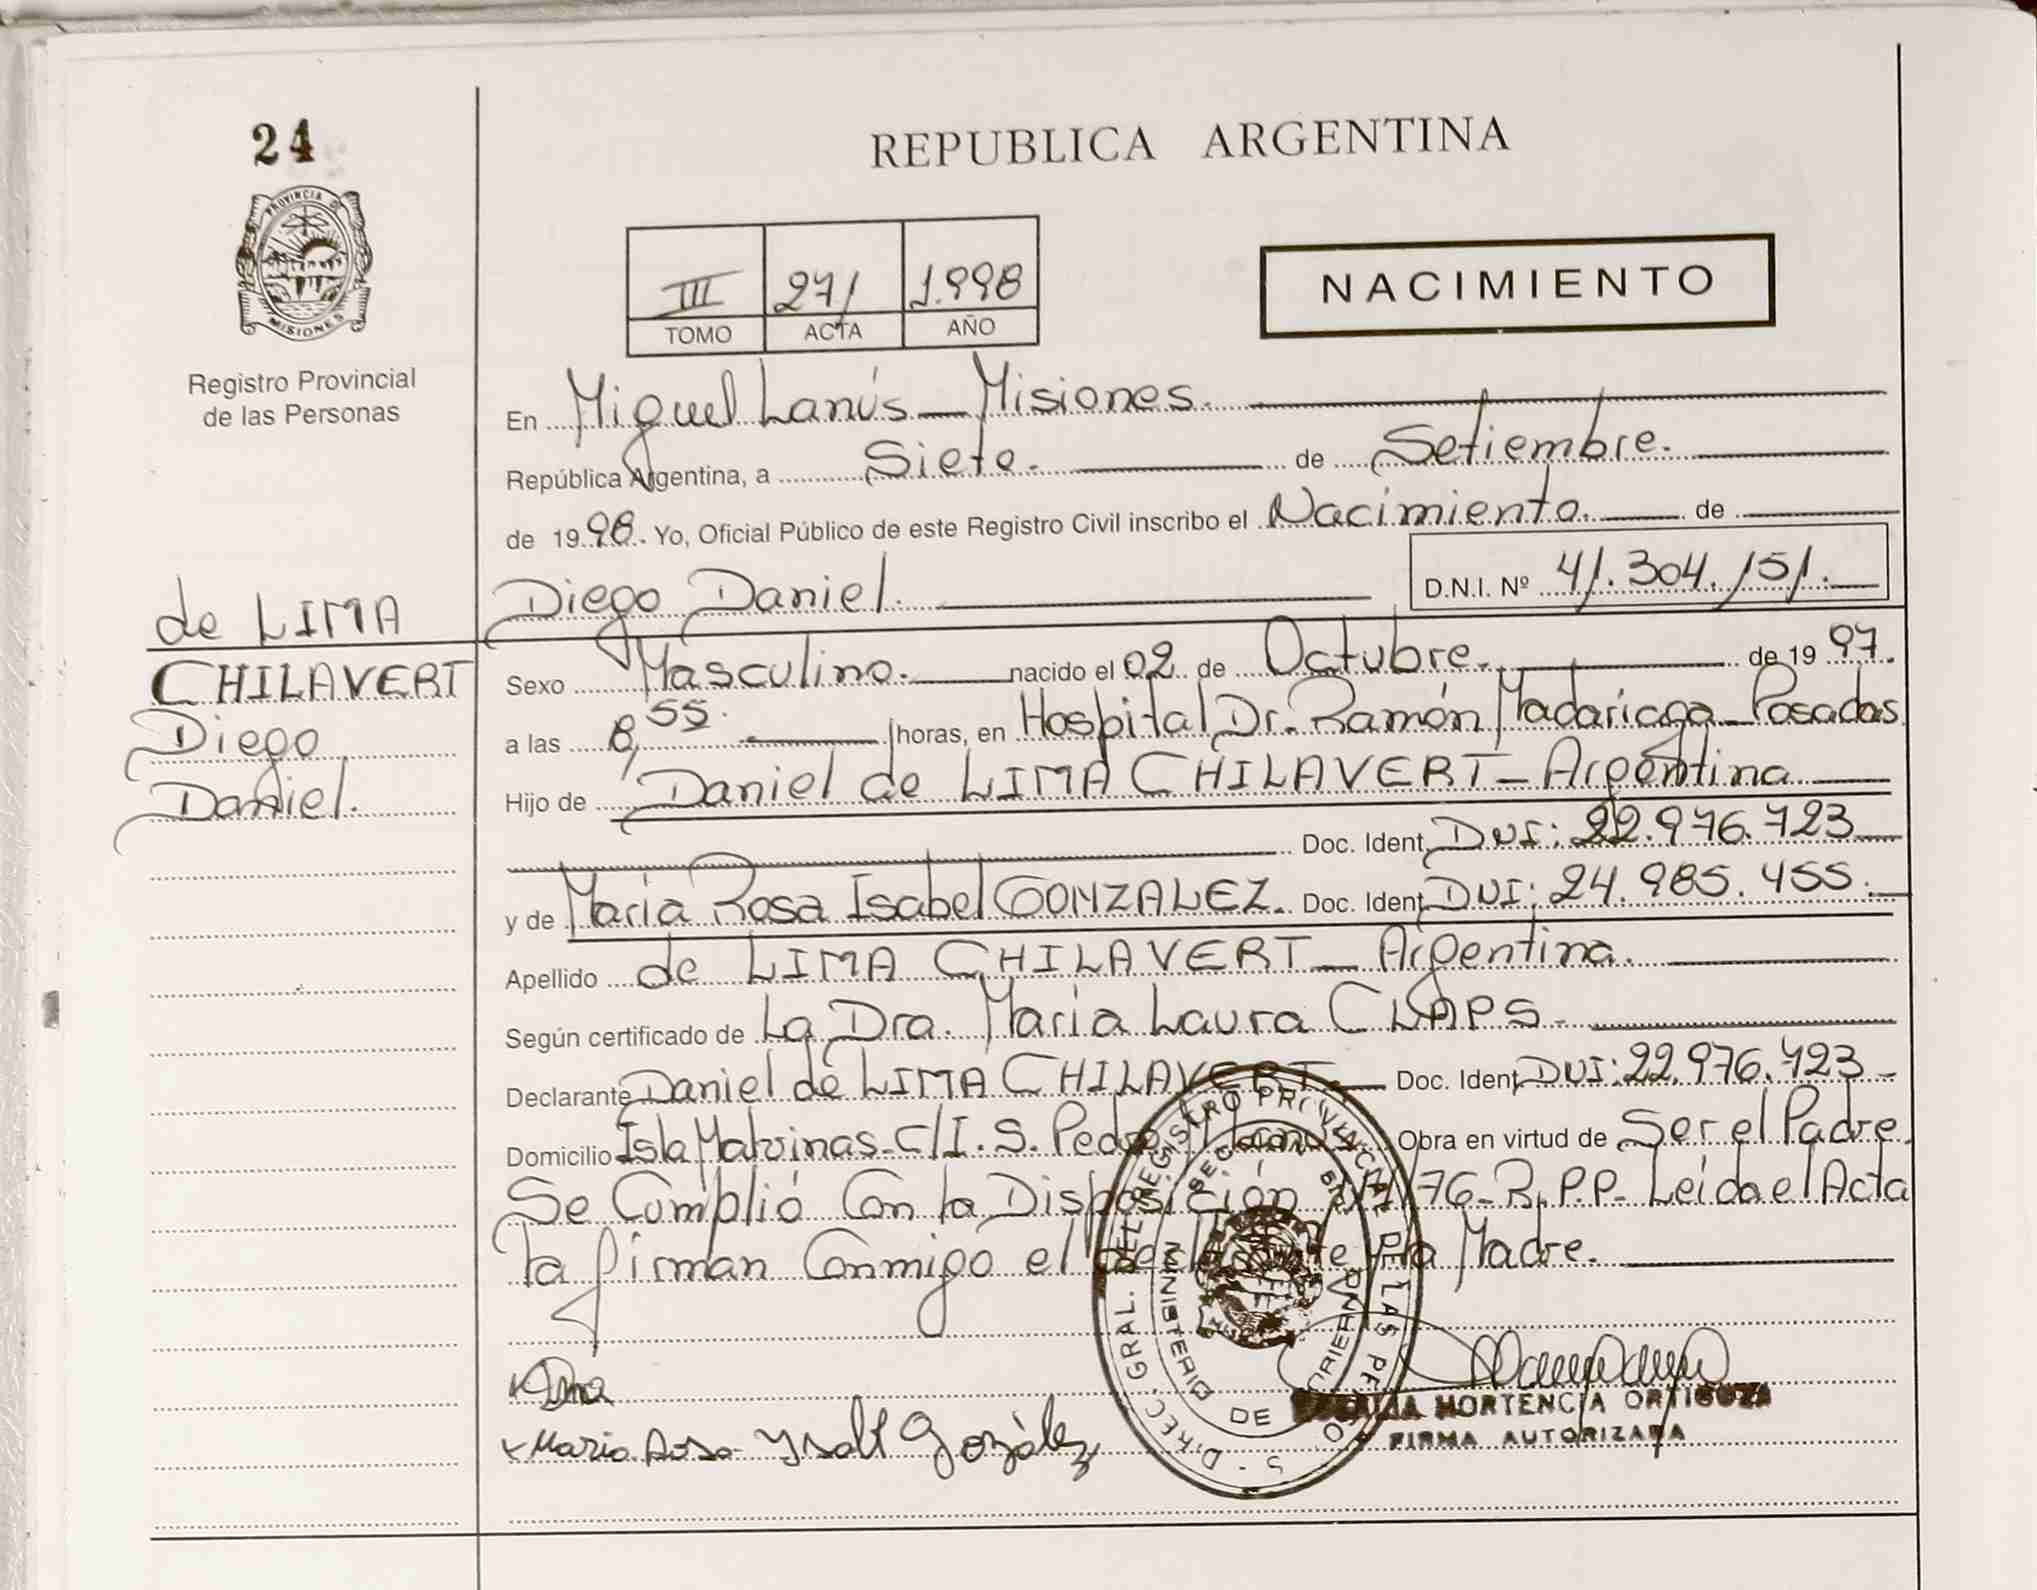 24
PROVINCIA DE
MISIONES
Registro Provincial
de las Personas
REPUBLICA ARGENTINA
III 271 1.998
TOMO ACTA AÑO
NACIMIENTO
En Miguel Lanús - Misiones.
República Argentina, a Siete. de Setiembre.
de 1998. Yo, Oficial Público de este Registro Civil inscribo el Nacimiento. de
Diego Daniel. D.N.I. Nº 41.304.151.
de LIMA
CHILAVERT
Diego
Daniel.
Sexo Masculino. nacido el 02 de Octubre. de 1997.
a las 8,55. horas, en Hospital Dr. Ramón Madariaga - Posadas
Hijo de Daniel de LIMA CHILAVERT - Argentina
Doc. Ident. DNI: 22.976.723
y de Maria Rosa Isabel GONZALEZ. Doc. Ident. DNI: 24.985.455.
Apellido de LIMA CHILAVERT - Argentina.
Según certificado de La Dra. Maria Laura CLAPS.
Declarante Daniel de LIMA CHILAVERT. Doc. Ident. DNI: 22.976.723
Domicilio Isla Malvinas - C/I. S. Pedro Obra en virtud de Ser el Padre.
Se Cumplió Con la Disposición /76 - R.P.P. - Leida el Acta
la firman Conmigo el declarante y la Madre.
DIREC. GRAL. DEL REGISTRO PROVINCIAL DE LAS
MINISTERIO DE
Maria Rosa Ysabel González
HORTENCIA ORTIGOZA
FIRMA AUTORIZADA